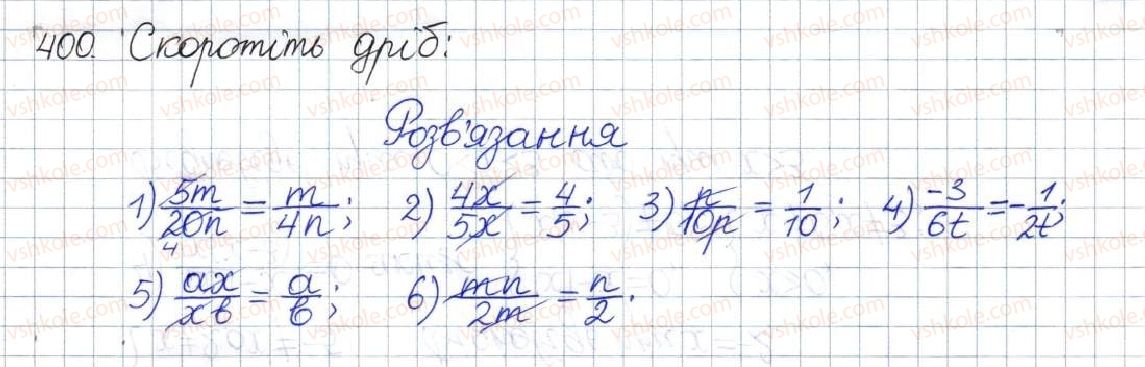 400. Скоротіть дріб:
Розв'язання
1) 5m/20n = m/4n; 2) 4x/5x = 4/5; 3) n/10n = 1/10; 4) -3/6t = -1/2t;
4
5) ax/xb = a/b; 6) mn/2m = n/2.
vshkole.com